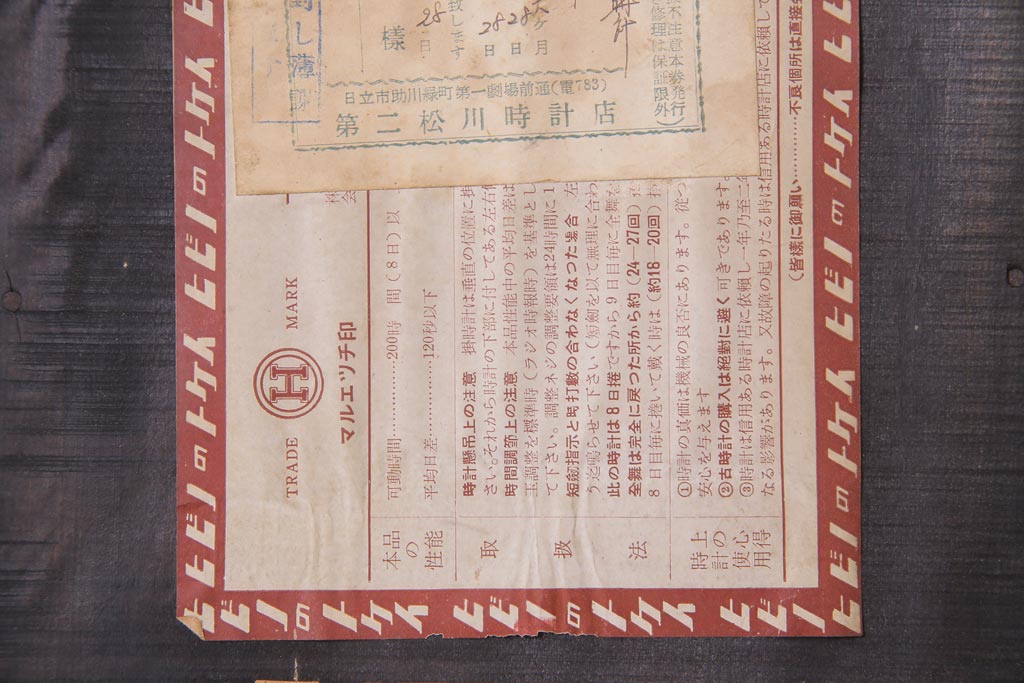 様
28日
28日28日
月
日立市助川緑町第一劇場前通(電783)
第二松川時計店
ヒビノのトケイ ヒビノのトケイ ヒビノ
TRADE H MARK
マルエッチ印
本品の性能
可動時間……………200時 間(8日)以
平均日差……………120秒以下
取扱法
時計懸吊上の注意 掛時計は垂直の位置に掛
さい。それから時計の下部に付してある左右
時間調節上の注意 本品性能中の平均日差は
玉調整を標準時(ラジオ時報時)を基準とし
て下さい。調整ネジの調整要領は24時間に1
短劔指示と時打數の合わなくなつた場合 左
う迄鳴らせて下さい(短劔を以て無理に合わ
此の時計は8日捲ですから9日目毎に全舞を
全舞は完全に戻つた所から約(24 27回)
8日目毎に捲いて戴く時は(約18 20回)
時計の使用上の心得
①時計の真価は機械の良否にあります。従つ
安心を与えます
②古時計の購入は絶對に避く可きであります。
③時計は信用ある時計店に依頼し一年乃至二
なる影響があります。又故障の起りたる時は信用ある時計店に依頼して
(皆様に御願い……………不良個所は直接
ヒビノのトケイ ヒビノのトケイ ヒビノのトケイ ヒ
ヒビノのトケイ ヒビノのトケイ ヒビノ